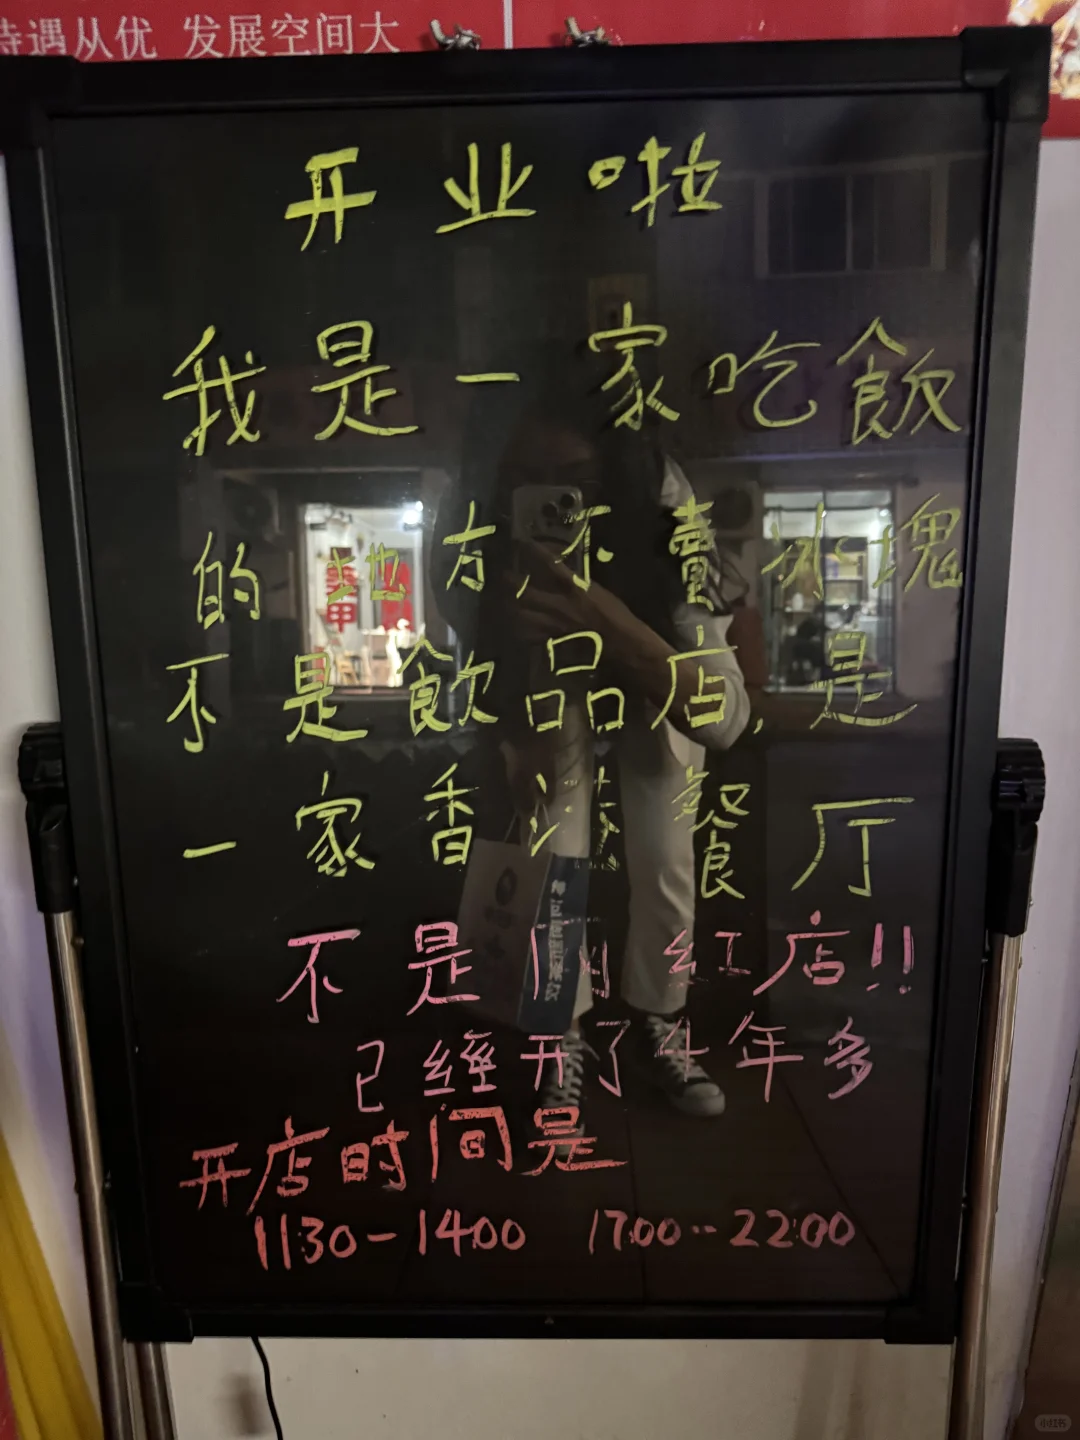 待遇从优 发展空间大
开业啦
我是一家吃飯
的地方,不賣冰塊
不是飲品店,是
一家香港餐厅
不是网紅店!!
已經开了4年多
开店时间是
1130-1400 1700--2200
美甲
小红书